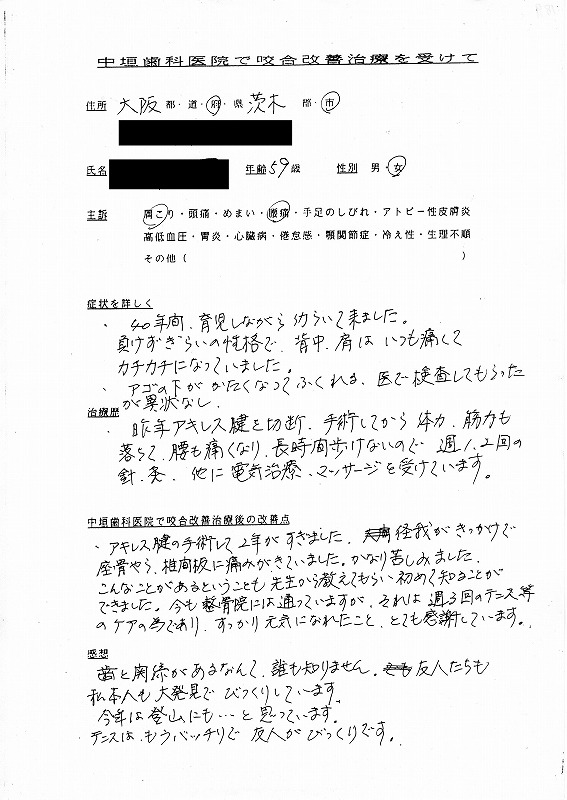 中垣歯科医院で咬合改善治療を受けて
住所 大阪 都・道・府・県 茨木 郡・市
氏名 年齢 59 歳 性別 男・女
主訴 肩こり・頭痛・めまい・腰痛・手足のしびれ・アトピー性皮膚炎
高低血圧・胃炎・心臓病・倦怠感・顎関節症・冷え性・生理不順
その他( )
症状を詳しく
・40年間、育児しながら働らいて来ました。
負けずぎらいの性格で、背中、肩は いつも痛くて
カチカチになっていました。
・アゴの下が かたくなって ふくれる、医で検査してもらった
が異状なし。
治療歴
・昨年アキレス腱を切断、手術してから 体力、筋力も
落ちて、腰も痛くなり、長時間歩けないので 週1、2回の
針、灸、他に電気治療、マッサージを受けています。
中垣歯科医院で咬合改善治療後の改善点
・アキレス腱の手術して2年がすぎました、怪我がきっかけで
座骨やら、椎間板に痛みがきていました。かなり苦しみました、
こんなことがあるということも先生から教えてもらい初めて知ることが
できました。今も整骨院には通っていますが、それは週3回のテニス等
のケアの為であり、すっかり元気になれたこと、とても感謝しています。
感想
歯と関係があるなんて、誰も知りません。友人たちも
私本人も大発見で びっくりしています。
今年は登山にも…と思っています。
テニスは、もうバッチリで 友人がびっくりです。